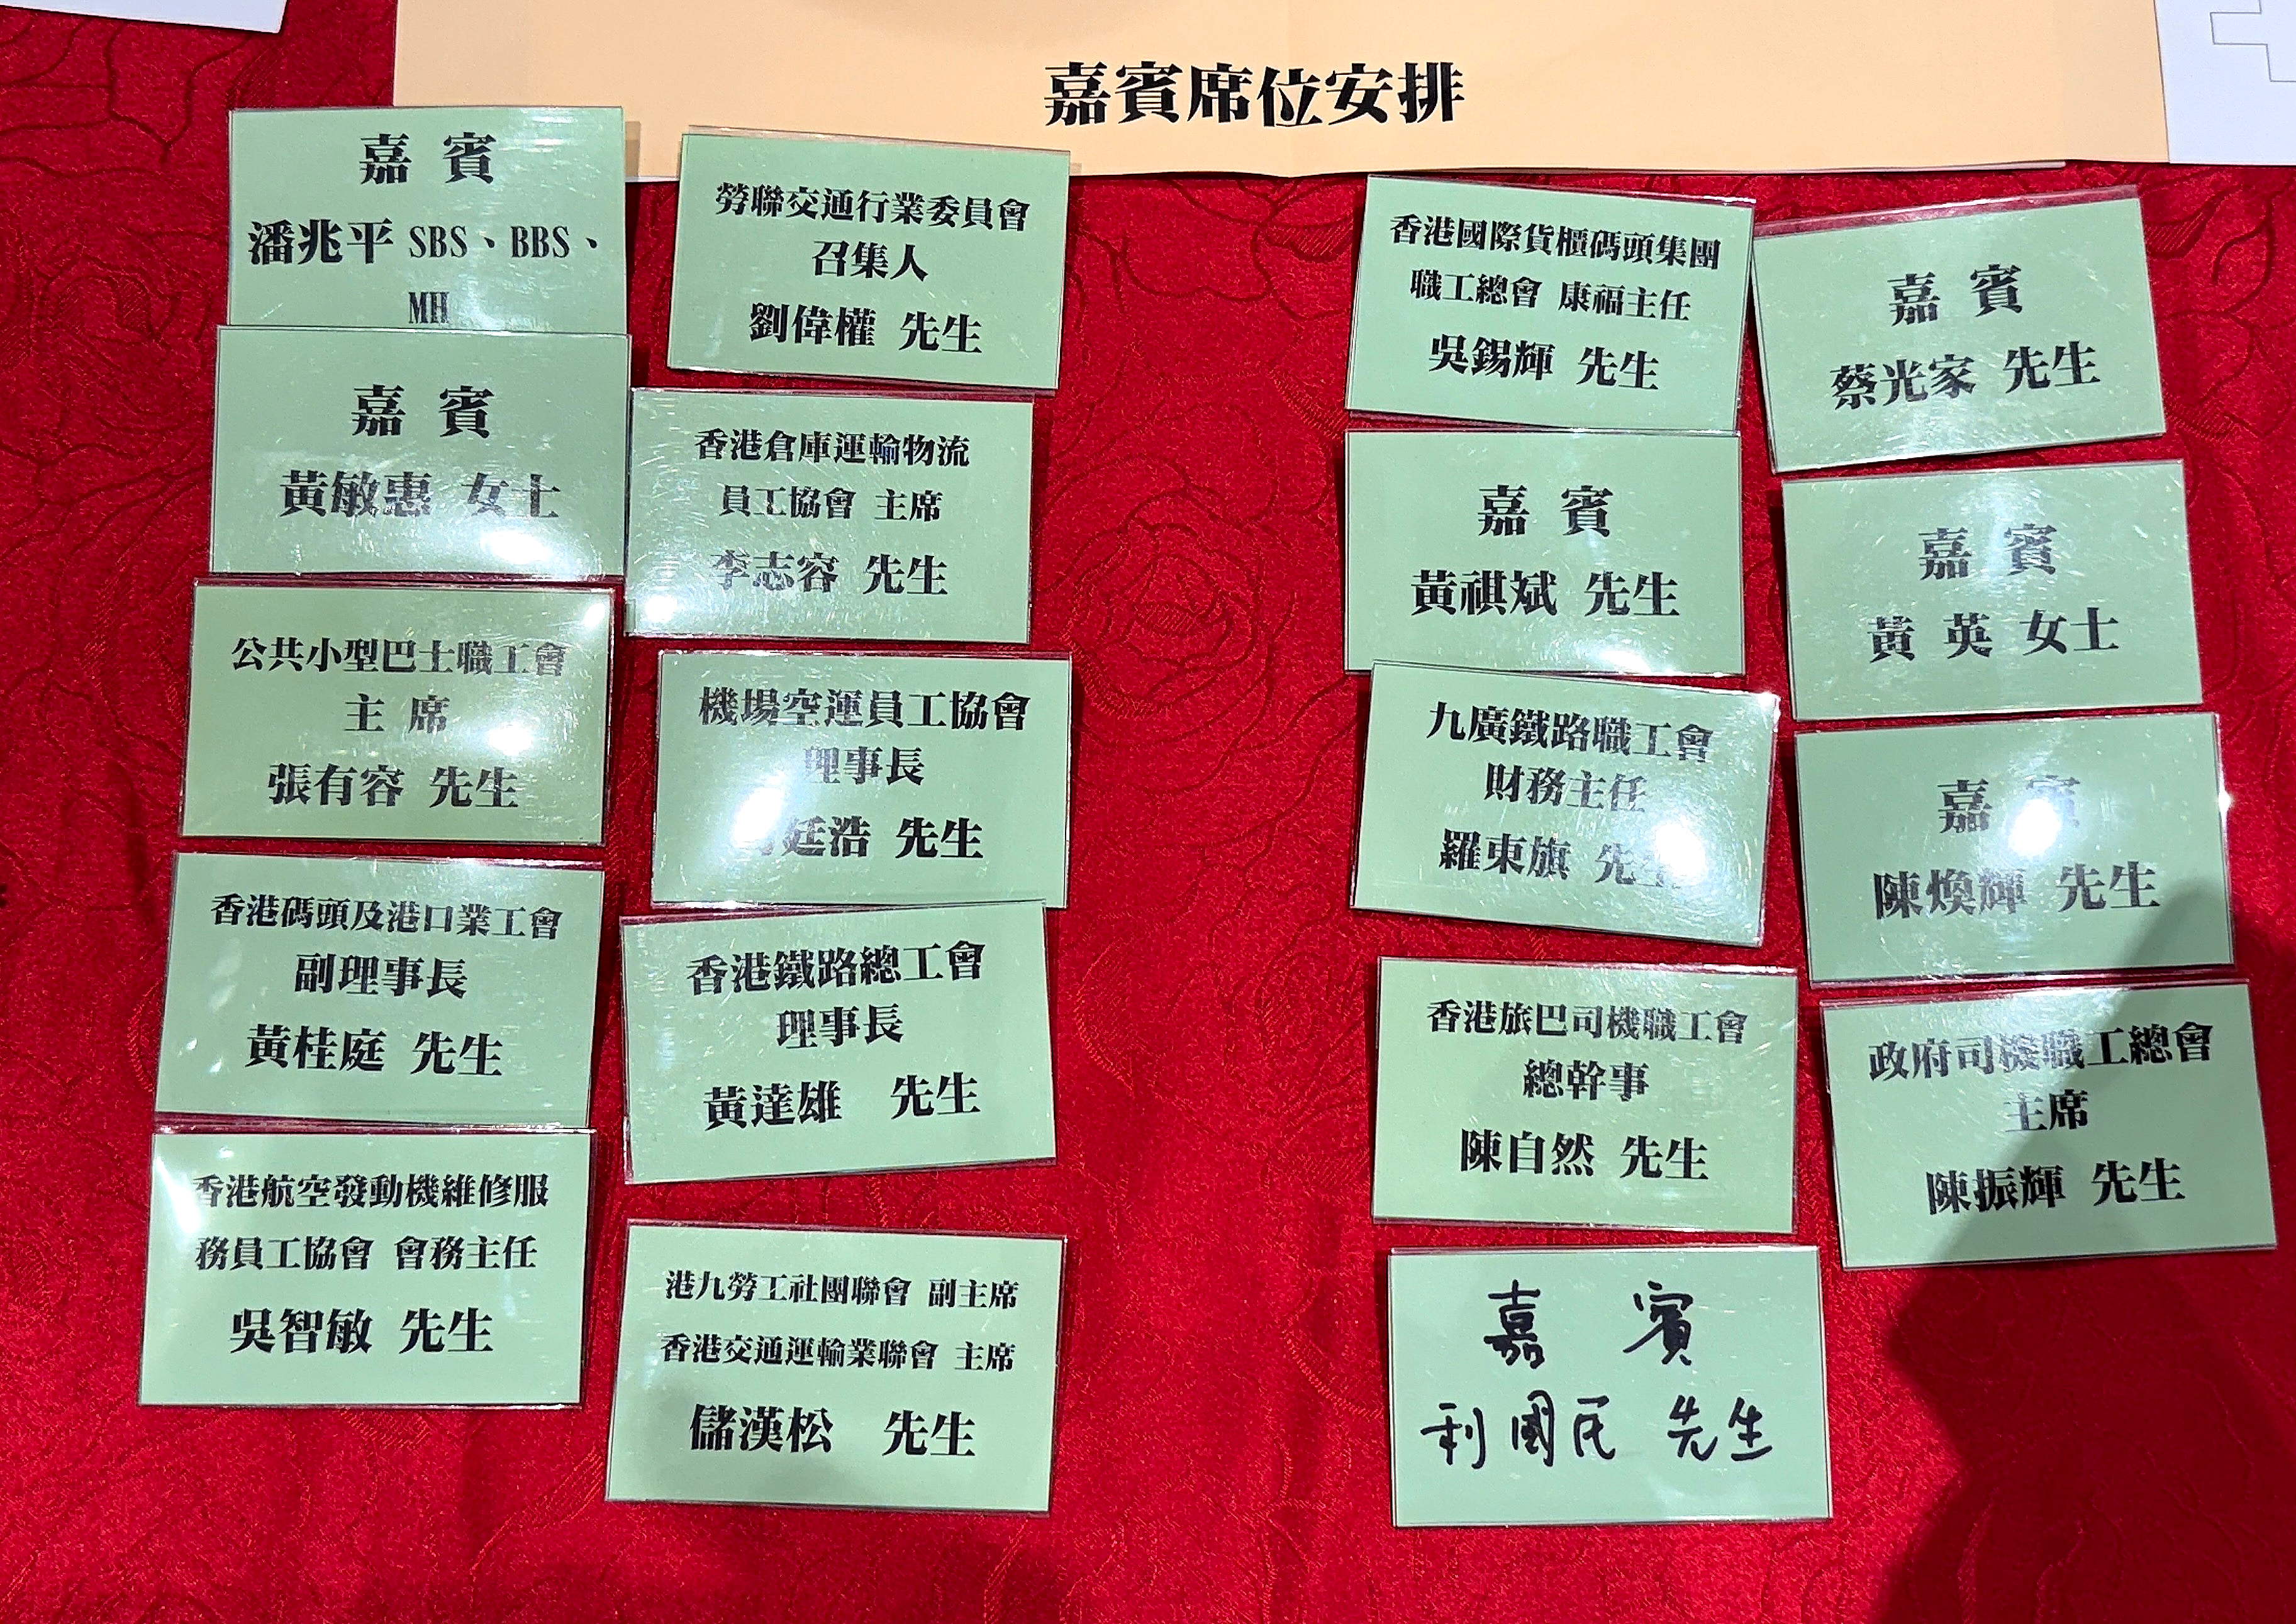 嘉賓席位安排
嘉 賓
潘兆平 SBS、BBS、
MH
嘉 賓
黃敏惠 女士
公共小型巴士職工會
主 席
張有容 先生
香港碼頭及港口業工會
副理事長
黃桂庭 先生
香港航空發動機維修服
務員工協會 會務主任
吳智敏 先生
勞聯交通行業委員會
召集人
劉偉權 先生
香港倉庫運輸物流
員工協會 主席
李志容 先生
機場空運員工協會
理事長
廷浩 先生
香港鐵路總工會
理事長
黃達雄 先生
港九勞工社團聯會 副主席
香港交通運輸業聯會 主席
儲漢松 先生
香港國際貨櫃碼頭集團
職工總會 康福主任
吳錫輝 先生
嘉 賓
黃祺斌 先生
九廣鐵路職工會
財務主任
羅東旗 先生
香港旅巴司機職工會
總幹事
陳自然 先生
嘉 賓
利國民 先生
嘉 賓
蔡光家 先生
嘉 賓
黃 英 女士
嘉 賓
陳煥輝 先生
政府司機職工總會
主席
陳振輝 先生